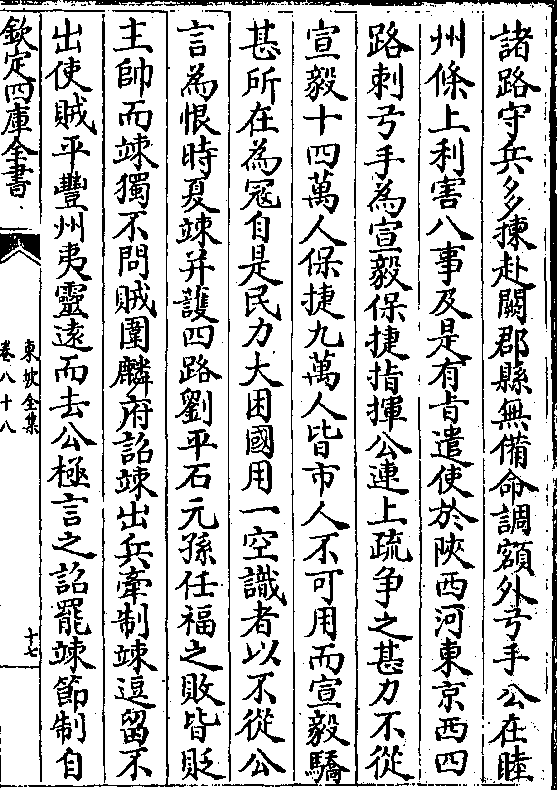 諸路守兵多揀赴闕郡縣無備命調額外弓手公在睦
州條上利害八事及是有㫖遣使於陜西河東京西四
路刺弓手為宣毅保捷指揮公連上疏争之甚力不從
宣毅十四萬人保捷九萬人皆市人不可用而宣毅驕
甚所在為冦自是民力大困國用一空識者以不從公
言為恨時夏竦并護四路劉平石元孫任福之敗皆貶
主帥而竦獨不問賊圍麟府詔竦出兵牽制竦逗留不
出使賊平豐州夷靈遠而去公極言之詔罷竦節制自
欽定四庫全書
東坡全集
卷八十八
十七